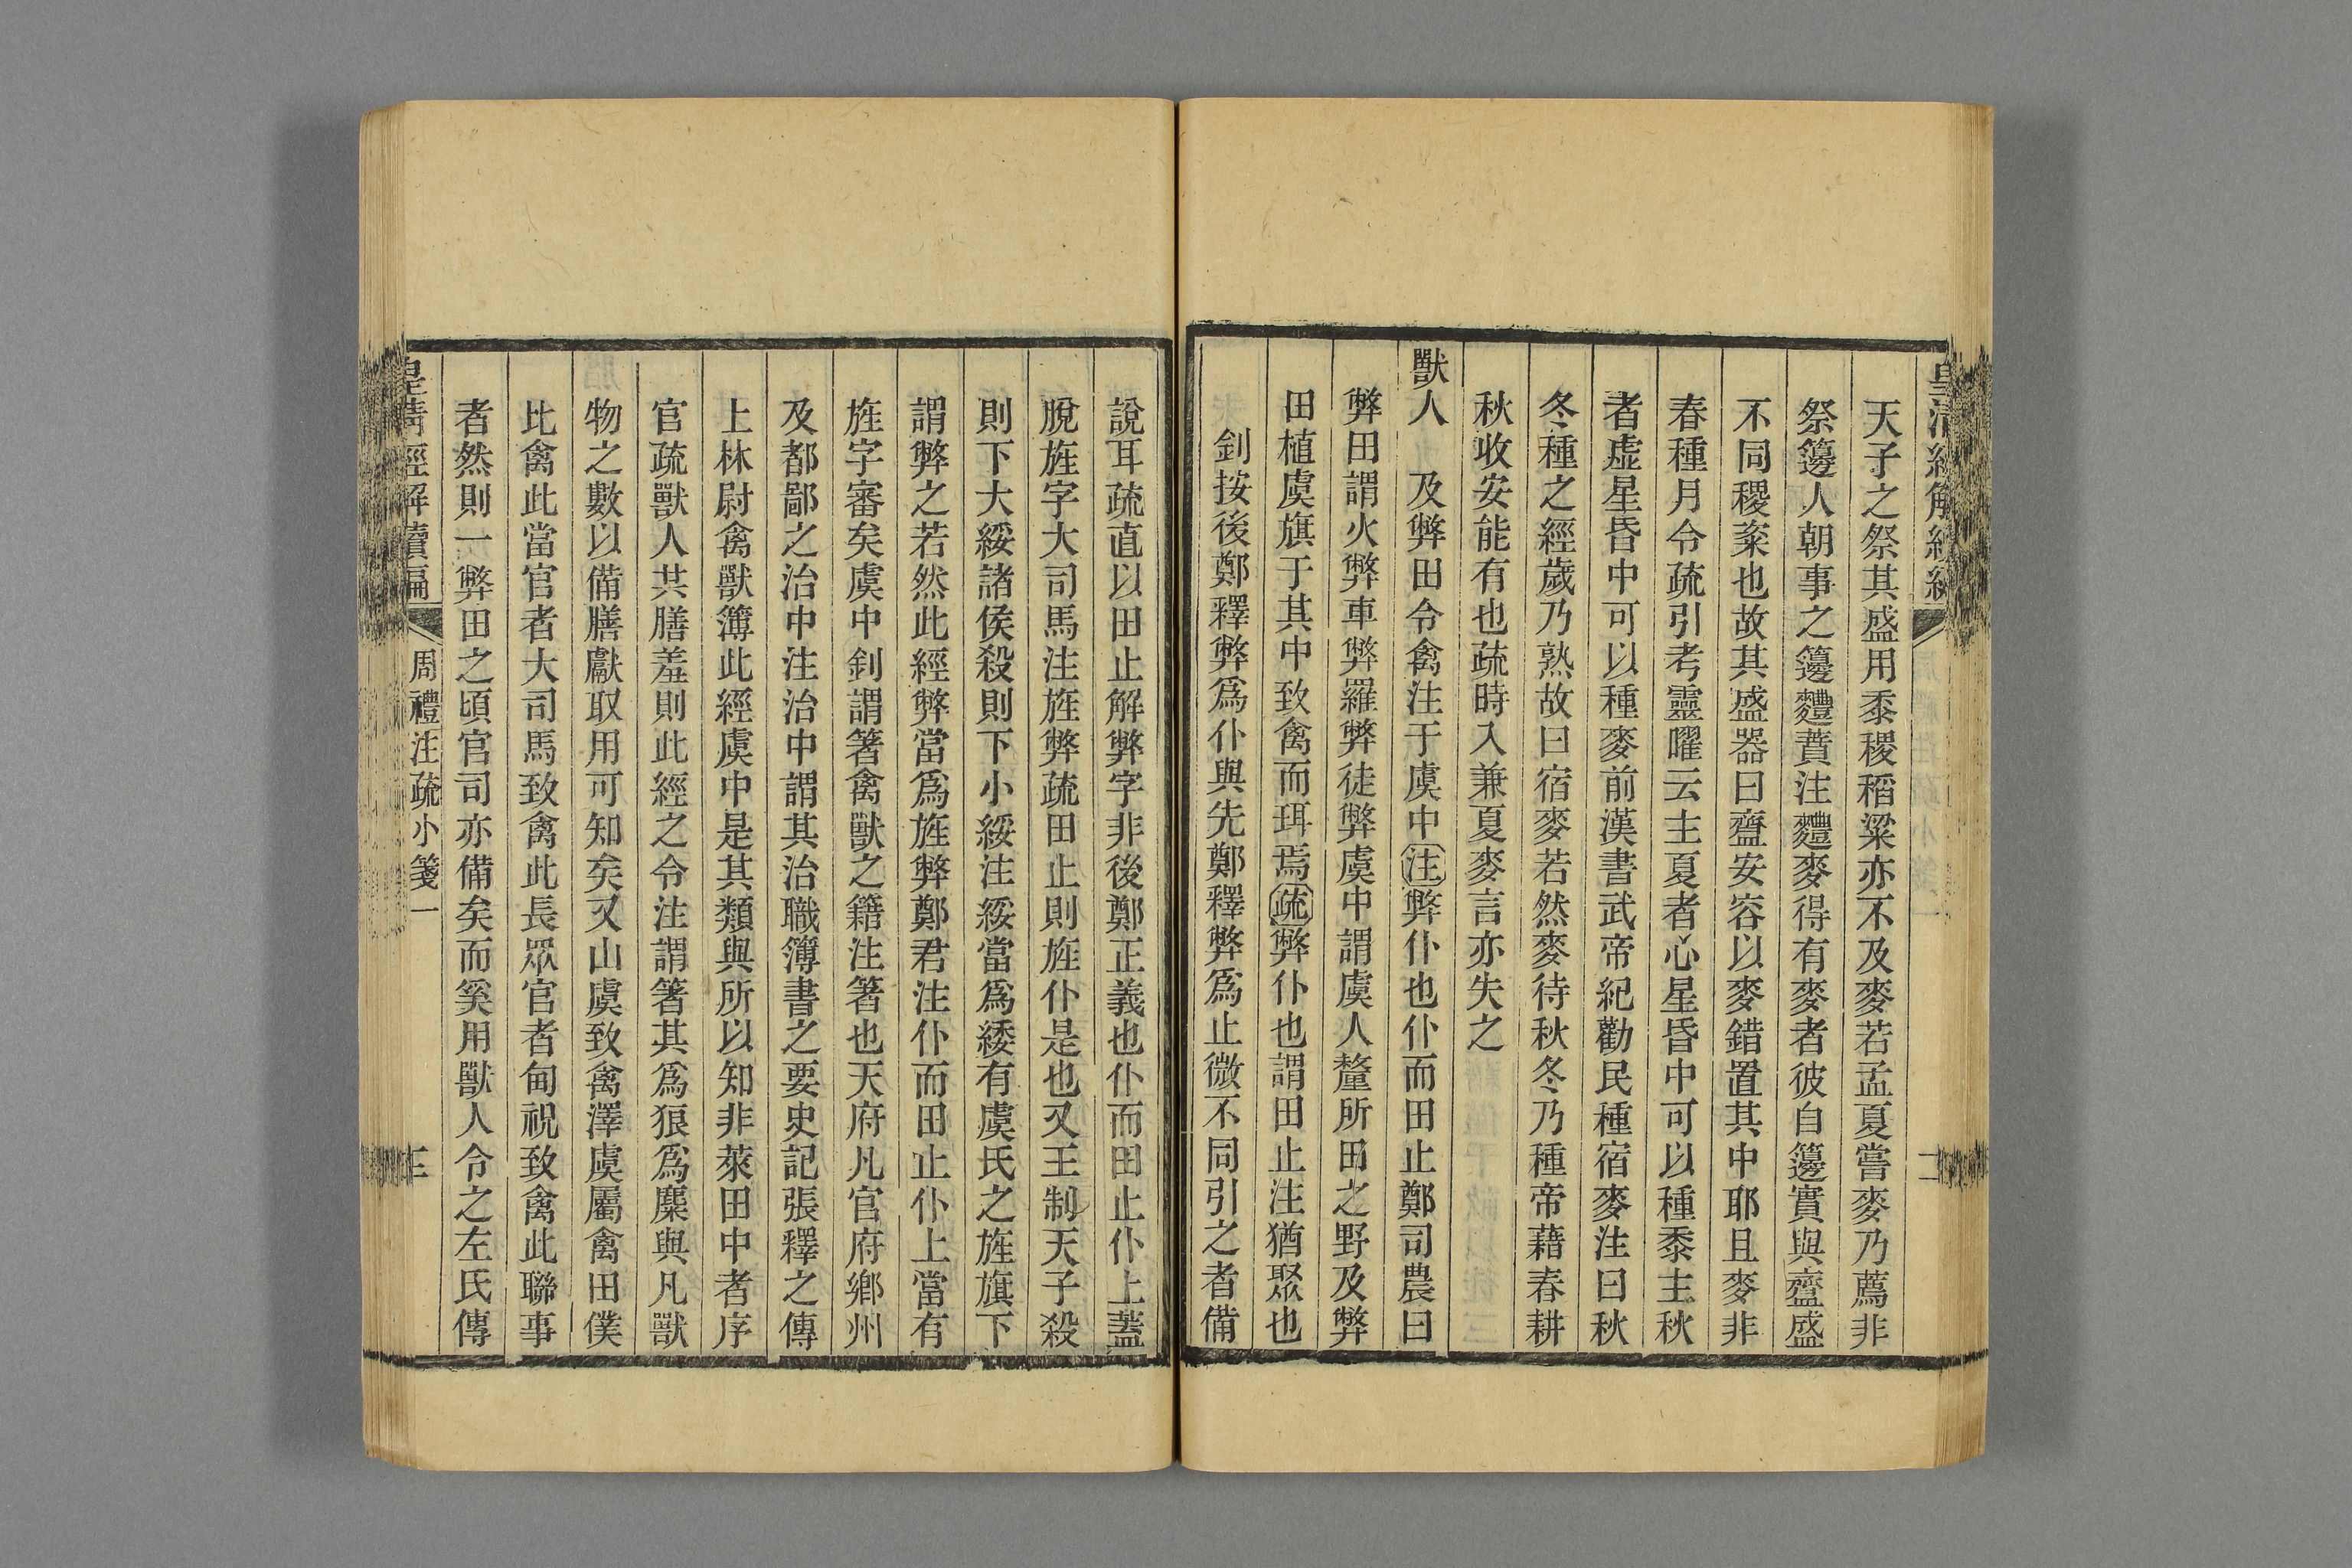 皇清經解續
二
天子之祭其盛用黍稷稻粱亦不及麥若孟夏嘗麥乃薦非
祭籩人朝事之籩麷蕡注麷麥得有麥者彼自籩實與齍盛
不同稷粢也故其盛器曰齍安容以麥錯置其中耶且麥非
春種月令疏引考靈曜云主夏者心星昏中可以種黍主秋
者虛星昏中可以種麥前漢書武帝紀勸民種宿麥注曰秋
冬種之經歲乃熟故曰宿麥若然麥待秋冬乃種帝藉春耕
秋收安能有也疏時入兼夏麥言亦失之
獸人　及弊田令禽注于虞中注弊仆也仆而田止鄭司農曰
弊田謂火弊車弊羅弊徒弊虞中謂虞人釐所田之野及弊
田植虞旗于其中致禽而珥焉疏弊仆也謂田止注猶聚也
釗按後鄭釋弊爲仆與先鄭釋弊爲止微不同引之者備
說耳疏直以田止解弊字非後鄭正義也仆而田止仆上蓋
脫旌字大司馬注旌弊疏田止則旌仆是也又王制天子殺
則下大綏諸侯殺則下小綏注綏當爲緌有虞氏之旌旗下
謂弊之若然此經弊當爲旌弊鄭君注仆而田止仆上當有
旌字審矣虞中釗謂箸禽獸之籍注箸也天府凡官府鄉州
及都鄙之治中注治中謂其治職簿書之要史記張釋之傳
上林尉禽獸簿此經虞中是其類與所以知非萊田中者序
官疏獸人共膳羞則此經之令注謂箸其爲狼爲麋與凡獸
物之數以備膳獻取用可知矣又山虞致禽澤虞屬禽田僕
比禽此當官者大司馬致禽此長眾官者甸祝致禽此聯事
者然則一弊田之頃官司亦備矣而奚用獸人令之左氏傳
皇清經解續編
周禮注疏小箋一
三